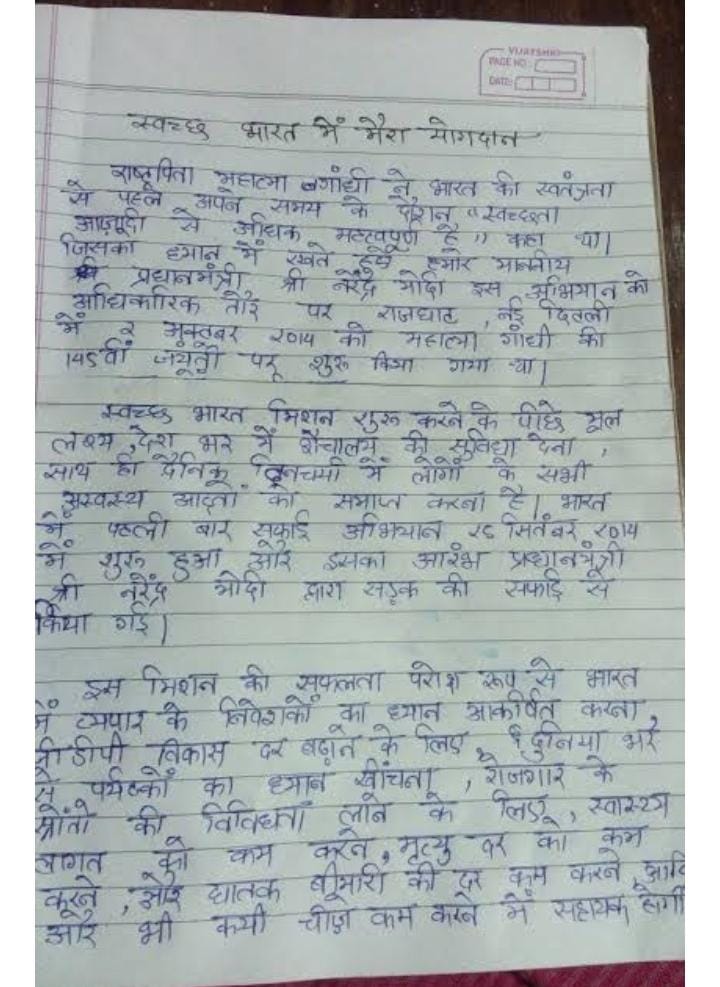 VIJAYSHRI
PAGE NO:
DATE:
स्वच्छ भारत में मेरा योगदान
राष्ट्रपिता महात्मा गांधी ने भारत की स्वतंत्रता
से पहले अपने समय के दौरान "स्वच्छता
आज़ादी से अधिक महत्वपूर्ण है" कहा था।
जिसका ध्यान में रखते हुये हमारे माननीय
प्रधानमंत्री श्री नरेंद्र मोदी इस अभियान को
आधिकारिक तौर पर राजघाट, नई दिल्ली
में २ अक्टूबर २०१४ को महात्मा गांधी की
145वीं जयंती पर शुरू किया गया था।
स्वच्छ भारत मिशन शुरू करने के पीछे मूल
लक्ष्य, देश भर में शौचालय की सुविधा देना,
साथ ही दैनिक दिनचर्या में लोगों के सभी
अस्वस्थ आदतों को समाप्त करना है। भारत
में पहली बार सफाई अभियान २५ सितंबर २०१४
में शुरू हुआ और इसका आरंभ प्रधानमंत्री
श्री नरेंद्र मोदी द्वारा सड़क की सफाई से
किया गई।
इस मिशन की सफलता परोक्ष रूप से भारत
में व्यपार के निवेशकों का ध्यान आकर्षित करना,
जीडीपी विकास दर बढ़ाने के लिए, दुनिया भर
से पर्यटकों का ध्यान खींचना, रोजगार के
स्रोतों की विविधता लाने के लिए, स्वास्थ्य
लागत को कम करने, मृत्यु दर को कम
करने, और घातक बीमारी की दर कम करने आदि
और भी कयी चीज़ कम करने में सहायक होगी